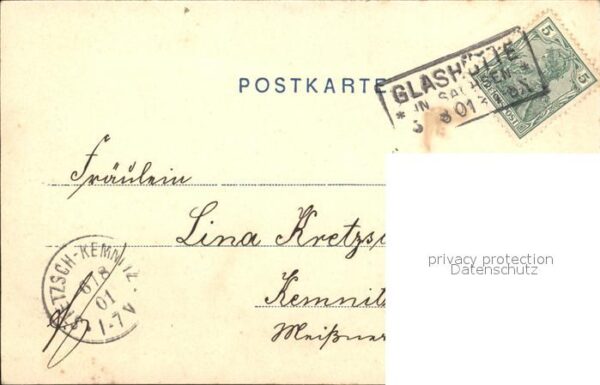 POSTKARTE
GLASHÜTTE
* IN SACHSEN *
5 8 01 *
5 5
Fräulein
Lina Kretzs
Kemnit
Meißner
ETZSCH-KEMNITZ
6/8
01
1-7 V
privacy protection
Datenschutz